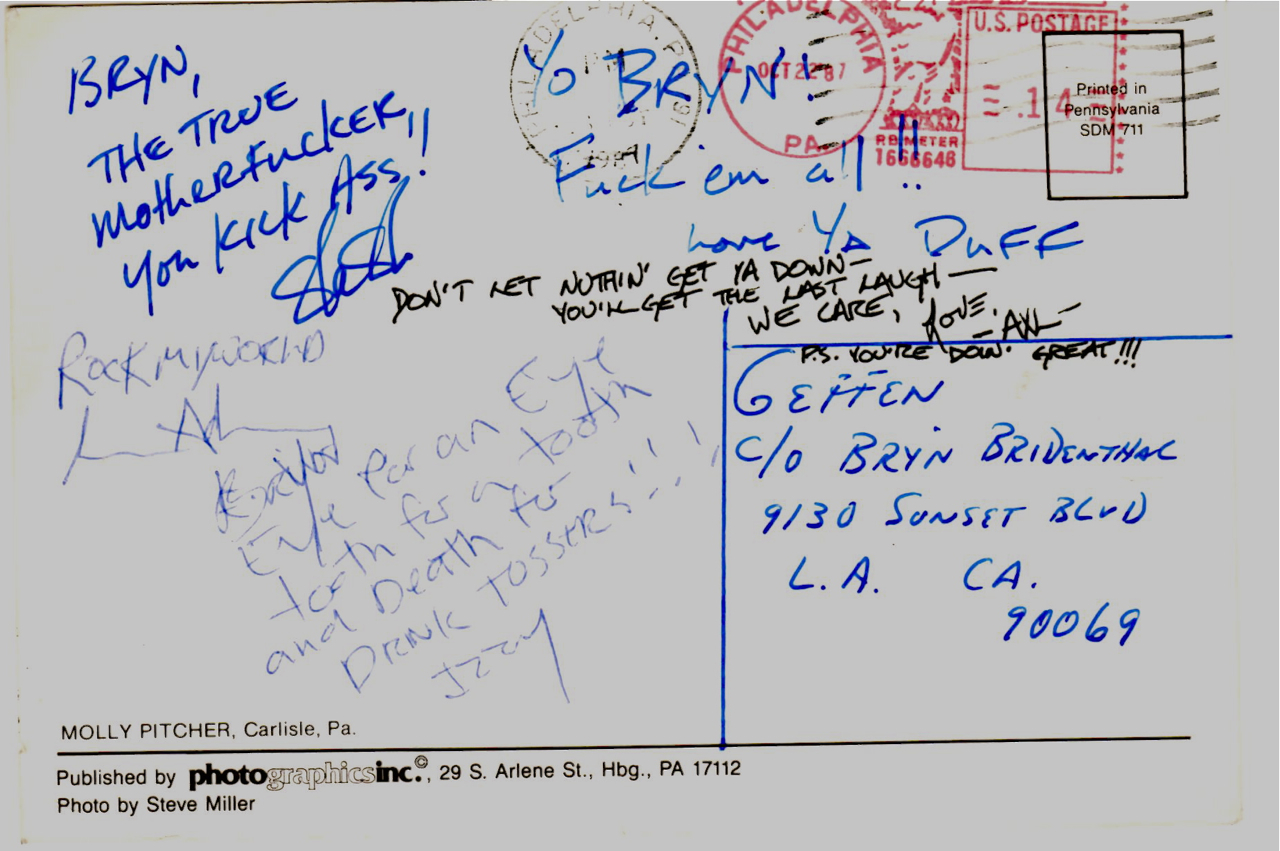 BRYN,
THE TRUE
MotherFucker,,
you Kick Ass!
Slash
Yo BRYN!
Fuck 'em all!!
Love Ya Duff
DON'T LET NUTHIN' GET YA DOWN—
YOU'LL GET THE LAST LAUGH—
WE CARE, LOVE,
—AXL—
P.S. YOU'RE DOIN' GREAT!!!
ROCK MY WORLD
Eye for an Eye
tooth for a tooth
and Death for
Drink Tossers!!!
Izzy
GEFFEN
C/O BRYN BRIDENTHAL
9130 SUNSET BLVD
L.A. CA.
90069
PHILADELPHIA, P
1987
PHILADELPHIA
OCT 22 87
PA
U.S. POSTAGE
.14
RB METER
1666646
Printed in
Pennsylvania
SDM 711
MOLLY PITCHER, Carlisle, Pa.
Published by photographicsinc.©, 29 S. Arlene St., Hbg., PA 17112
Photo by Steve Miller